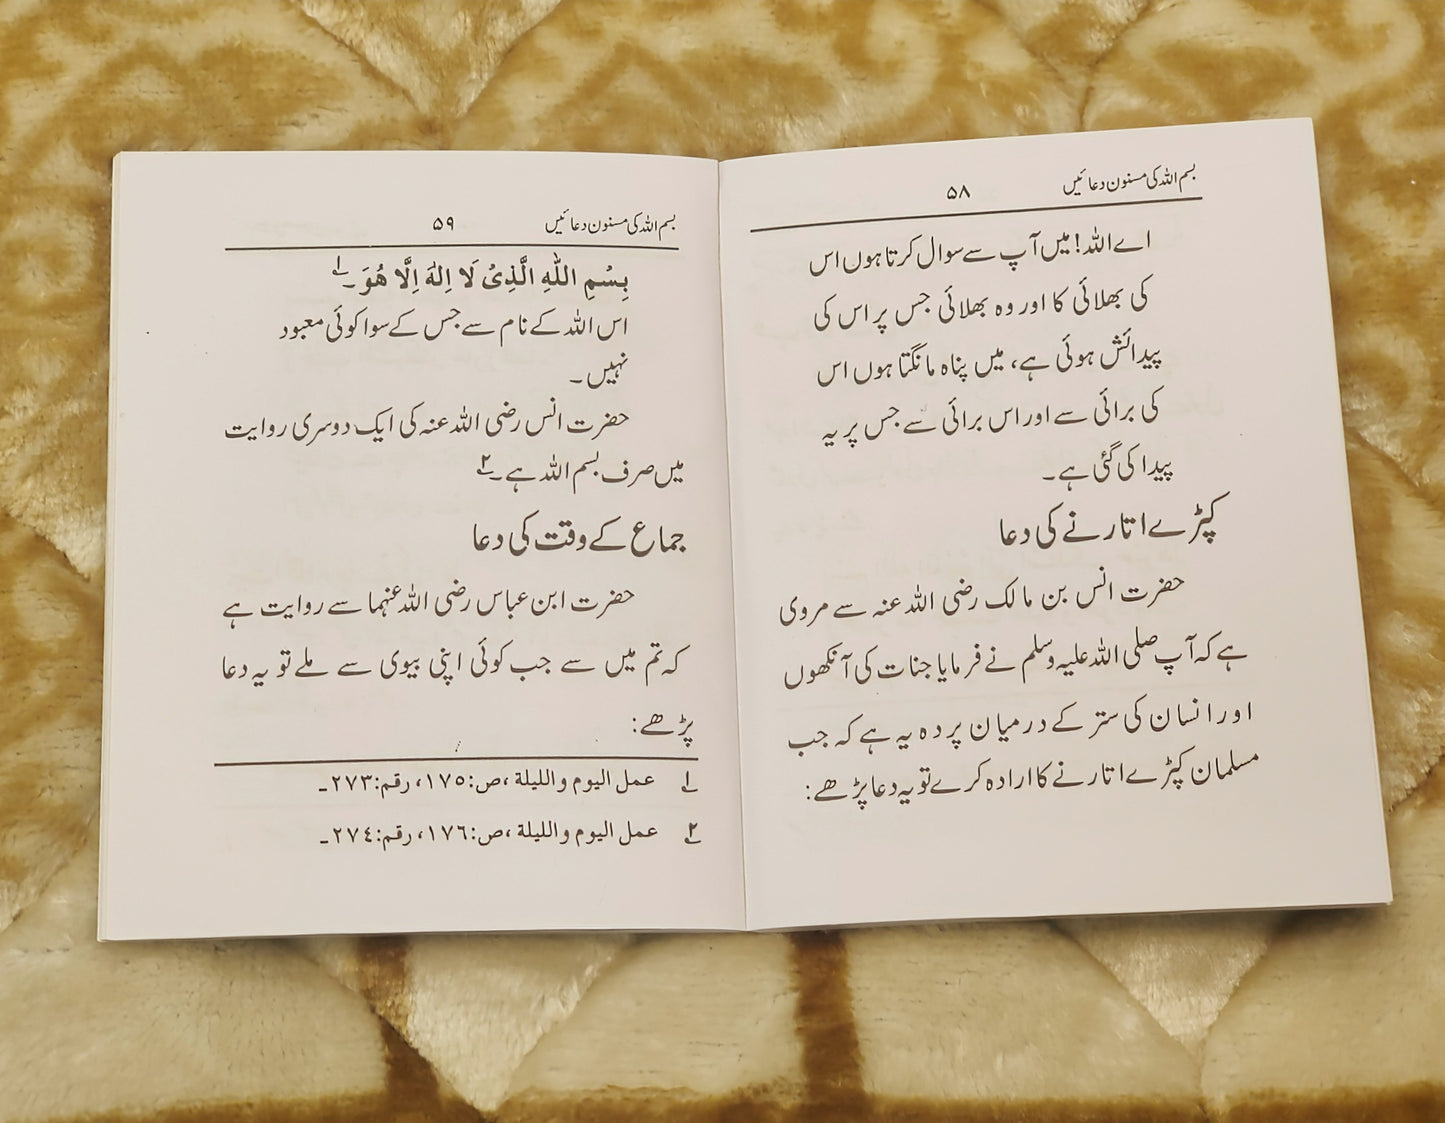 بسم اللہ کی مسنون دعائیں ۵۸
اے اللہ! میں آپ سے سوال کرتا ہوں اس
کی بھلائی کا اور وہ بھلائی جس پر اس کی
پیدائش ہوئی ہے، میں پناہ مانگتا ہوں اس
کی برائی سے اور اس برائی سے جس پر یہ
پیدا کی گئی ہے۔
کپڑے اتارنے کی دعا
حضرت انس بن مالک رضی اللہ عنہ سے مروی
ہے کہ آپ صلی اللہ علیہ وسلم نے فرمایا جنات کی آنکھوں
اور انسان کی ستر کے درمیان پردہ یہ ہے کہ جب
مسلمان کپڑے اتارنے کا ارادہ کرے تو یہ دعا پڑھے:
بسم اللہ کی مسنون دعائیں ۵۹
بِسْمِ اللّٰهِ الَّذِیْ لَا اِلٰهَ اِلَّا هُوَ۔ ۱
اس اللہ کے نام سے جس کے سوا کوئی معبود
نہیں۔
حضرت انس رضی اللہ عنہ کی ایک دوسری روایت
میں صرف بسم اللہ ہے۔ ۲
جماع کے وقت کی دعا
حضرت ابن عباس رضی اللہ عنہما سے روایت ہے
کہ تم میں سے جب کوئی اپنی بیوی سے ملے تو یہ دعا
پڑھے:
۱ عمل اليوم والليلة ،ص:١٧٥، رقم:٢٧٣۔
۲ عمل اليوم والليلة ،ص:١٧٦، رقم:٢٧٤۔